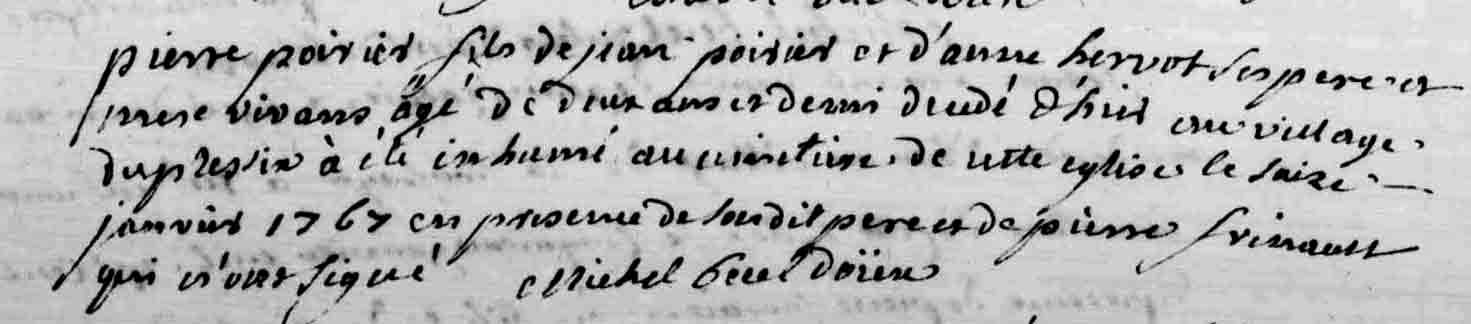 pierre poirier fils de jean poirier et d'anne hervot ses pere et
mere vivans âgé de deux ans et demi décédé d'hier au village
duplessix à été inhumé au cimetiere de cette eglise le saize
janvier 1767 en presence de sondit pere et de pierre
qui n'ont signé Michel doïen